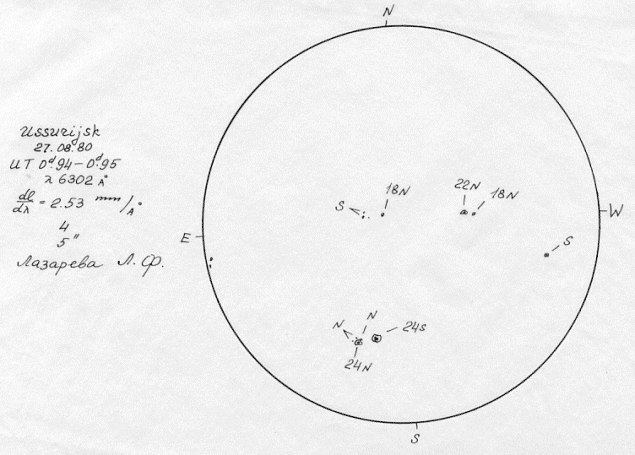 N
Ussurijsk
27.08.80
UT 0ᵈ.94 – 0ᵈ.95
λ 6302 A°
dl/dλ = 2.53 mm/A°
4
5"
Лазарева Л. Ф.
18N
22N
18N
S
W
E
S
N
N
24S
24N
S